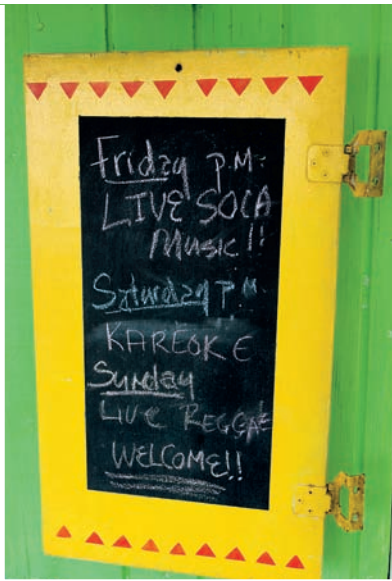 Friday P.M.
LIVE SOCA
Music!!
Saturday P.M.
KAREOKE
Sunday
LIVE REGGAE
WELCOME!!